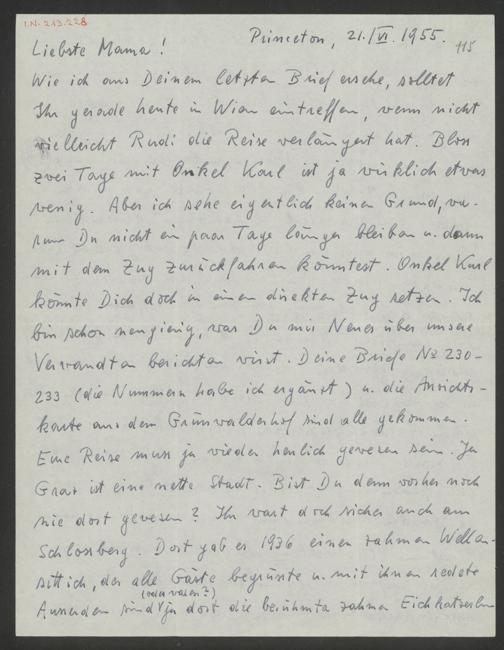 I.N. 213.228
Princeton, 21./VI. 1955.
115
Liebste Mama!
Wie ich aus Deinem letzten Brief ersehe, solltet
Ihr gerade heute in Wien eintreffen, wenn nicht
vielleicht Rudi die Reise verlängert hat. Bloss
zwei Tage mit Onkel Karl ist ja wirklich etwas
wenig. Aber ich sehe eigentlich keinen Grund, wa-
rum Du nicht ein paar Tage länger bleiben u. dann
mit dem Zug zurückfahren könntest. Onkel Karl
könnte Dich doch in einen direkten Zug setzen. Ich
bin schon neugierig, was Du mir Neues über unsere
Verwandten berichten wirst. Deine Briefe No 230-
233 (die Nummern habe ich ergänzt) u. die Ansichts-
karte aus dem Grünwalderhof sind alle gekommen.
Eure Reise muss ja wieder herrlich gewesen sein. Ja
Graz ist eine nette Stadt. Bist Du denn vorher noch
nie dort gewesen? Ihr wart doch sicher auch am
Schlossberg. Dort gab es 1936 einen zahmen Wellen-
sittich, der alle Gäste begrüsste u. mit ihnen redete
(oder waren?)
Ausserdem sind ja dort die berühmten zahmen Eichkatzerln